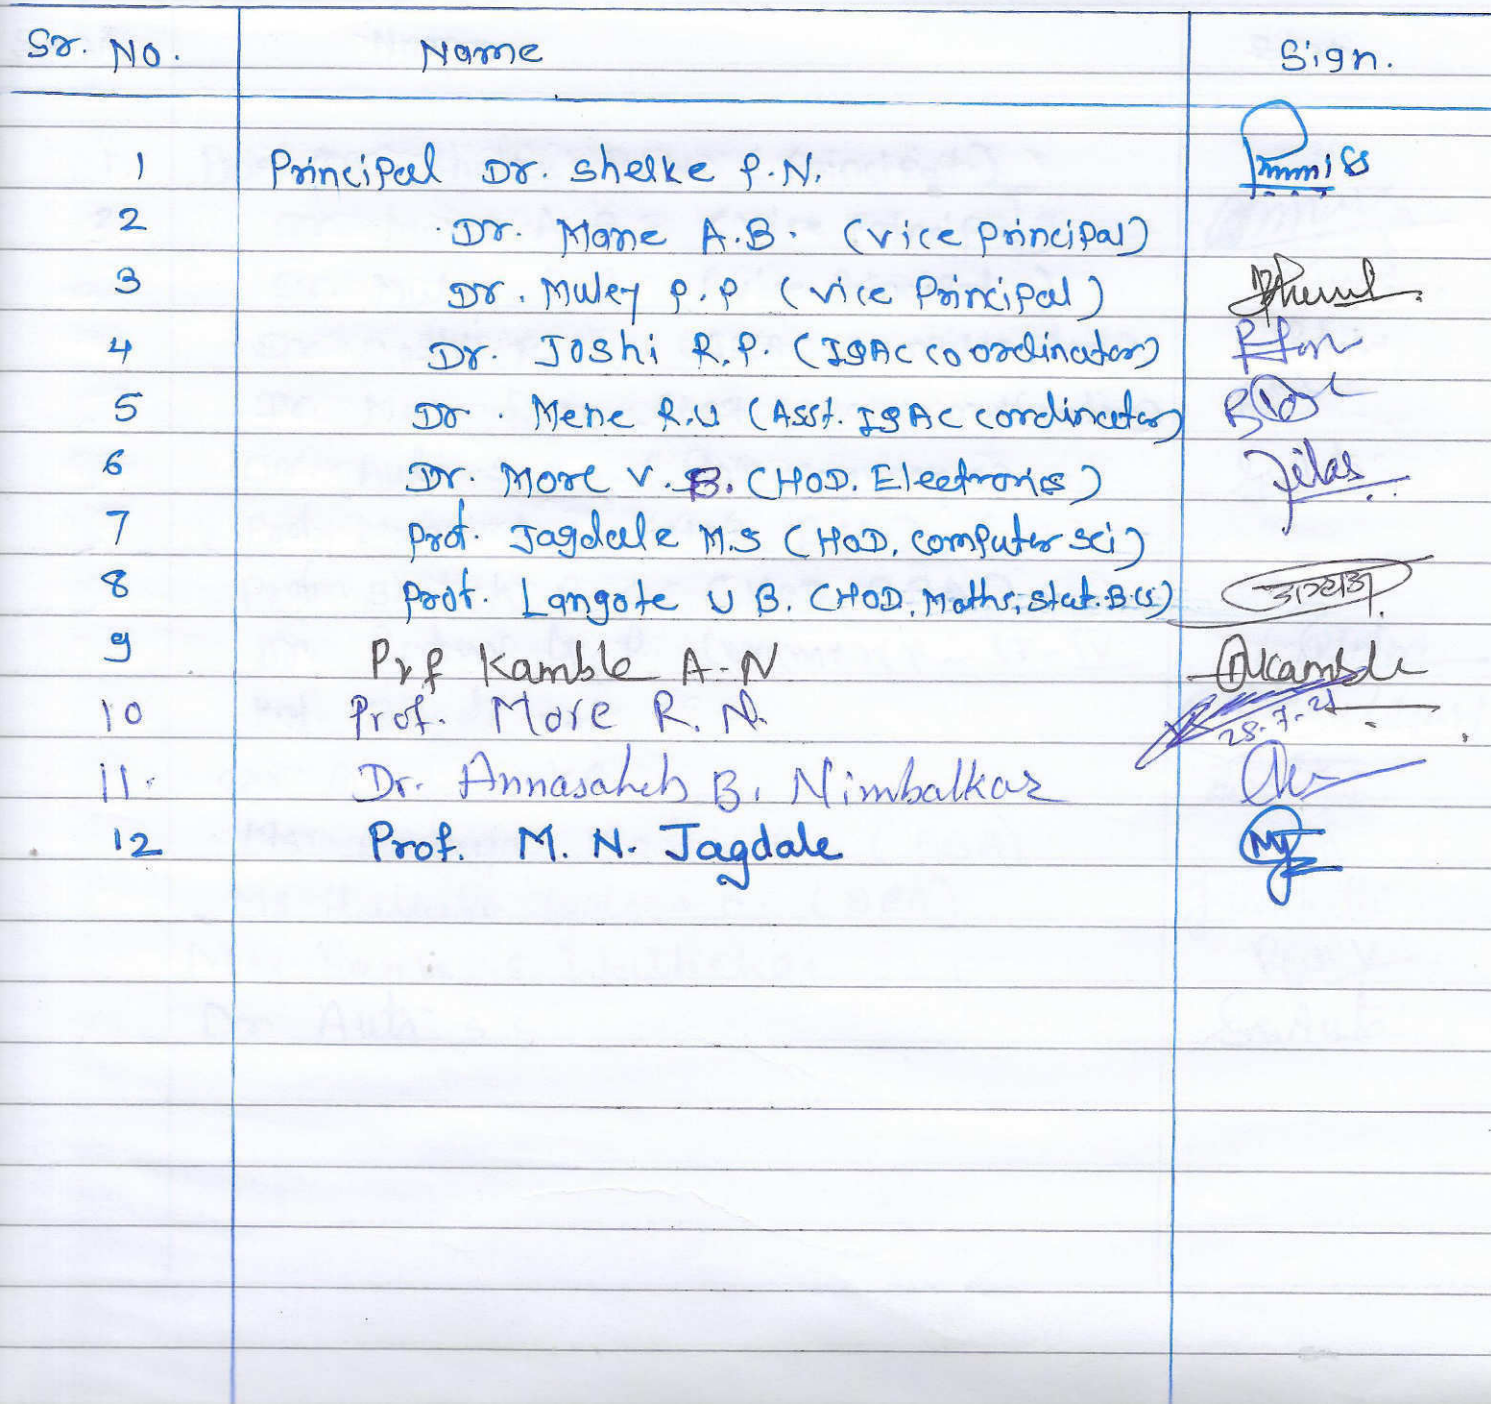 Sr. No. Name Sign.
1 Principal Dr. Shelke P.N.
2 Dr. Mane A.B. (Vice Principal)
3 Dr. Muley P.P (Vice Principal)
4 Dr. Joshi R.P. (IQAC Coordinator)
5 Dr. Mene R.U (Asst. IQAC Cordinator)
6 Dr. More V.B. (HOD. Electronics)
7 Prof. Jagdale M.S (HOD, Computer Sci)
8 Prof. Langote U B. (HOD, Maths, Stat. B.CS)
9 Prf Kamble A-N Kamble
10 Prof. More R. N. 28-7-21
11. Dr. Annasaheb B. Nimbalkar
12 Prof. M. N. Jagdale MJ